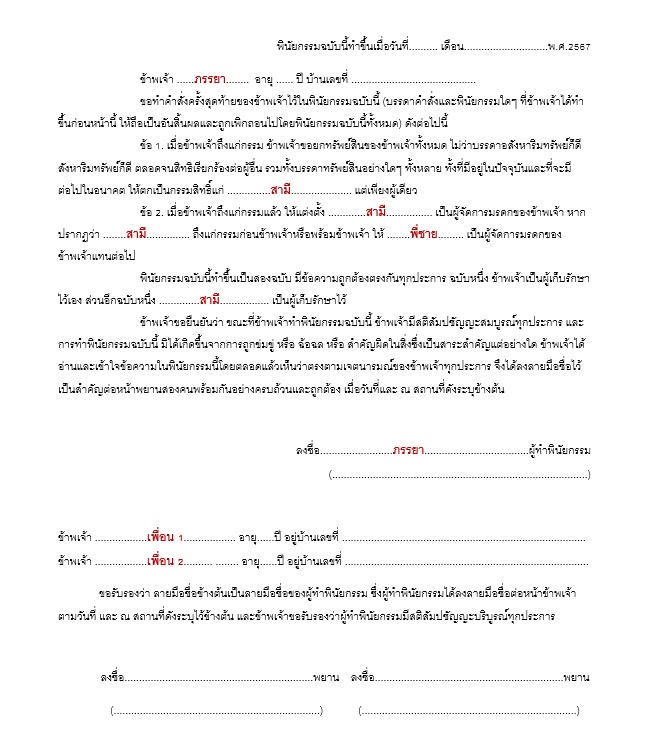 พินัยกรรมฉบับนี้ทำขึ้นเมื่อวันที่.......... เดือน.............................พ.ศ.2567
ข้าพเจ้า ......ภรรยา........ อายุ ...... ปี บ้านเลขที่ ...........................................
ขอทำคำสั่งครั้งสุดท้ายของข้าพเจ้าไว้ในพินัยกรรมฉบับนี้ (บรรดาคำสั่งและพินัยกรรมใดๆ ที่ข้าพเจ้าได้ทำ
ขึ้นก่อนหน้านี้ ให้ถือเป็นอันสิ้นผลและถูกเพิกถอนไปโดยพินัยกรรมฉบับนี้ทั้งหมด) ดังต่อไปนี้
ข้อ 1. เมื่อข้าพเจ้าถึงแก่กรรม ข้าพเจ้าขอยกทรัพย์สินของข้าพเจ้าทั้งหมด ไม่ว่าบรรดาอสังหาริมทรัพย์ก็ดี
สังหาริมทรัพย์ก็ดี ตลอดจนสิทธิเรียกร้องต่อผู้อื่น รวมทั้งบรรดาทรัพย์สินอย่างใดๆ ทั้งหลาย ทั้งที่มีอยู่ในปัจจุบันและที่จะมี
ต่อไปในอนาคต ให้ตกเป็นกรรมสิทธิ์แก่ ...............สามี..................... แต่เพียงผู้เดียว
ข้อ 2. เมื่อข้าพเจ้าถึงแก่กรรมแล้ว ให้แต่งตั้ง .............สามี................ เป็นผู้จัดการมรดกของข้าพเจ้า หาก
ปรากฏว่า ........สามี............... ถึงแก่กรรมก่อนข้าพเจ้าหรือพร้อมข้าพเจ้า ให้ ........พี่ชาย......... เป็นผู้จัดการมรดกของ
ข้าพเจ้าแทนต่อไป
พินัยกรรมฉบับนี้ทำขึ้นเป็นสองฉบับ มีข้อความถูกต้องตรงกันทุกประการ ฉบับหนึ่ง ข้าพเจ้าเป็นผู้เก็บรักษา
ไว้เอง ส่วนอีกฉบับหนึ่ง ..............สามี................. เป็นผู้เก็บรักษาไว้
ข้าพเจ้าขอยืนยันว่า ขณะที่ข้าพเจ้าทำพินัยกรรมฉบับนี้ ข้าพเจ้ามีสติสัมปชัญญะสมบูรณ์ทุกประการ และ
การทำพินัยกรรมฉบับนี้ มิได้เกิดขึ้นจากการถูกข่มขู่ หรือ ฉ้อฉล หรือ สำคัญผิดในสิ่งซึ่งเป็นสาระสำคัญแต่อย่างใด ข้าพเจ้าได้
อ่านและเข้าใจข้อความในพินัยกรรมนี้โดยตลอดแล้วเห็นว่าตรงตามเจตนารมณ์ของข้าพเจ้าทุกประการ จึงได้ลงลายมือชื่อไว้
เป็นสำคัญต่อหน้าพยานสองคนพร้อมกันอย่างครบถ้วนและถูกต้อง เมื่อวันที่และ ณ สถานที่ดังระบุข้างต้น
ลงชื่อ.........................ภรรยา....................................ผู้ทำพินัยกรรม
(........................................................................................)
ข้าพเจ้า ..................เพื่อน 1.................. อายุ......ปี อยู่บ้านเลขที่ ....................................................................................
ข้าพเจ้า ..................เพื่อน 2.......... ........ อายุ......ปี อยู่บ้านเลขที่ ....................................................................................
ขอรับรองว่า ลายมือชื่อข้างต้นเป็นลายมือชื่อของผู้ทำพินัยกรรม ซึ่งผู้ทำพินัยกรรมได้ลงลายมือชื่อต่อหน้าข้าพเจ้า
ตามวันที่ และ ณ สถานที่ดังระบุไว้ข้างต้น และข้าพเจ้าขอรับรองว่าผู้ทำพินัยกรรมมีสติสัมปชัญญะบริบูรณ์ทุกประการ
ลงชื่อ.................................................................พยาน ลงชื่อ.................................................................พยาน
(.......................................................................) (..........................................................................)